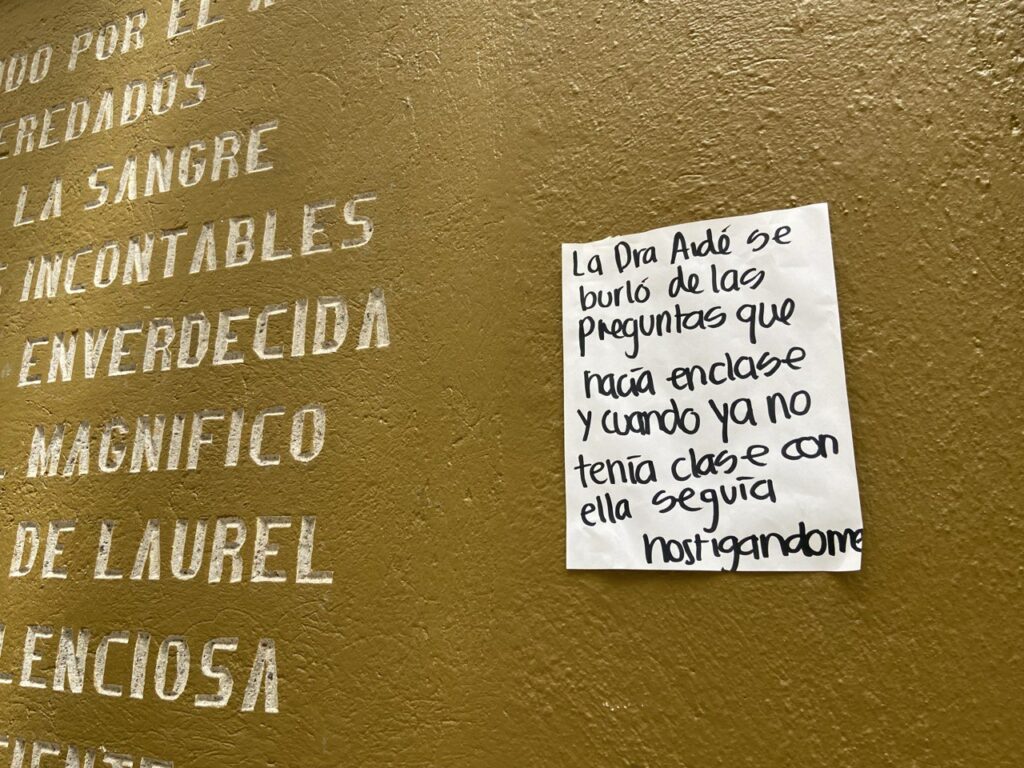 POR EL
LA SANGRE
INCONTABLES
ENVERDECIDA
MAGNIFICO
DE LAUREL
La Dra Aidé se
burló de las
preguntas que
hacía enclase
y cuando ya no
tenía clase con
ella seguía
hostigandome